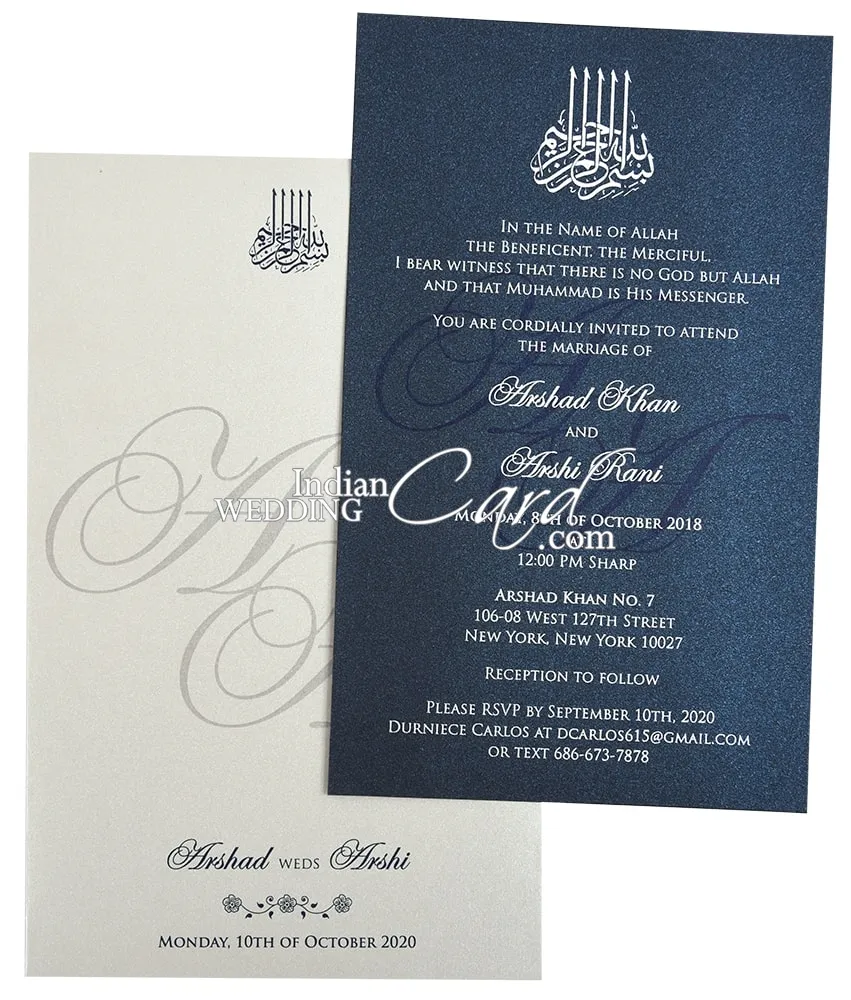 بسم الله الرحمن الرحيم
Arshad weds Arshi
Monday, 10th of October 2020
بسم الله الرحمن الرحيم
In the Name of Allah
the Beneficent, the Merciful,
I bear witness that there is no God but Allah
and that Muhammad is His Messenger.
You are cordially invited to attend
the marriage of
Arshad Khan
and
Arshi Rani
Monday, 8th of October 2018
12:00 PM Sharp
Arshad Khan No. 7
106-08 West 127th Street
New York, New York 10027
Reception to follow
Please RSVP by September 10th, 2020
Durniece Carlos at dcarlos615@gmail.com
or text 686-673-7878
Indian
WEDDING Card.com